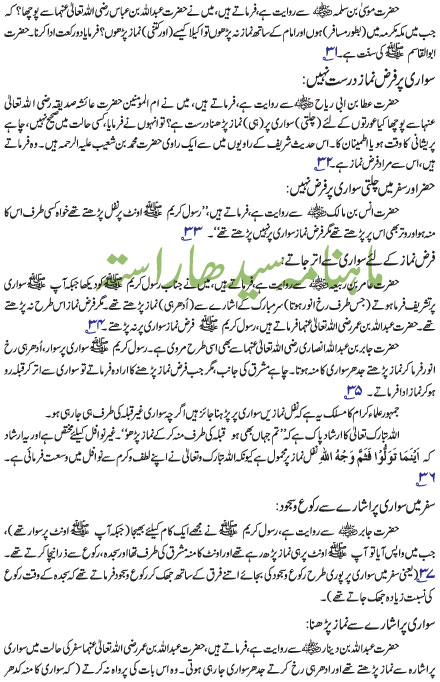 حضرت موسیٰ بن سلمہ ﷺ سے روایت ہے، فرماتے ہیں، میں نے حضرت عبداللہ بن عباس رضی اللہ تعالیٰ عنہما سے پوچھا؟ کہ
جب میں مکہ مکرمہ میں (بطور مسافر) ہوں اور امام کے ساتھ نماز نہ پڑھوں تو اکیلا کیسے (اور کتنی) نماز پڑھوں؟ فرمایا دو رکعت ادا کرنا۔ حضرت
ابوالقاسم ﷺ کی سنّت ہے۔ ۳۱
سواری پر فرض نماز درست نہیں:
حضرت عطا بن ابی رباح ﷺ سے روایت ہے، فرماتے ہیں، میں نے ام المؤمنین حضرت عائشہ صدیقہ رضی اللہ تعالیٰ
عنہا سے پوچھا کیا عورتوں کے لئے (چلتی) سواری پر (ہی) نماز پڑھنا درست ہے؟ تو انہوں نے فرمایا، کسی حالت میں صحیح نہیں، چاہے
پریشانی کا وقت ہو یا اطمینان کا۔ اس حدیث شریف کے راویوں میں سے ایک راوی حضرت محمد بن شعیب علیہ الرحمہ ہیں۔ وہ فرماتے
ہیں، اس سے مراد فرض نماز ہے۔ ۳۲
حضر اور سفر میں چلتی سواری پر فرض نہیں:
حضرت انس بن مالک ﷺ سے روایت ہے، فرماتے ہیں، ’’رسول کریم ﷺ اونٹ پر نفل پڑھتے تھے خواہ کسی طرف اس کا
منہ ہو اور وتر بھی اس پر پڑھتے تھے مگر فرض نماز سواری پر نہیں پڑھتے تھے‘‘۔ ۳۳
فرض نماز کے لئے سواری سے اتر جاتے:
حضرت عامر بن ربیعہ ﷺ سے روایت ہے، فرماتے ہیں، میں نے جناب رسول کریم ﷺ کو دیکھا جبکہ آپ ﷺ سواری
پر تشریف فرما ہوتے (جس طرف رخ انور ہوتا) سر مبارک کے اشارے سے (اُدھر ہی) نماز پڑھتے تھے۔ مگر فرض نماز اس طرح نہ پڑھتے
تھے۔ حضرت عبداللہ بن عمر رضی اللہ تعالیٰ عنہما فرماتے ہیں، رسول کریم ﷺ فرض نماز سواری پر نہ پڑھتے تھے۔ ۳۴
حضرت جابر بن عبداللہ انصاری رضی اللہ تعالیٰ عنہما سے بھی اسی طرح مروی ہے۔ رسول کریم ﷺ سواری پر سوار، اُدھر ہی رخ
انور فرما کر نماز پڑھتے جدھر سواری کا منہ ہوتا۔ چاہے مشرق کی جانب، مگر جب فرض نماز پڑھنے کا ارادہ فرماتے تو سواری سے اتر کر قبلہ رو
ہو کر نماز ادا فرماتے۔ ۳۵
جمہور علماء کرام کا مسلک یہ ہے کہ نفل نمازیں سواری پر پڑھنا جائز ہیں اگرچہ سواری غیر قبلہ کی طرف ہی جا رہی ہو۔
اللہ تبارک تعالیٰ کا ارشاد پاک ہے کہ ’’تم جہاں بھی ہو قبلہ کی طرف منہ کر کے نماز پڑھو‘‘۔ غیر نوافل کیلئے مختص ہے اور یہ ارشاد
کہ اَیْنَمَا تُوَلُّوْا فَثَمَّ وَجْهُ اللّٰهِ نفل نماز پر محمول ہے کیونکہ اللہ تبارک وتعالیٰ نے اپنے لطف و کرم سے نوافل میں وسعت فرمائی ہے۔
۳۶
سفر میں سواری پر اشارے سے رکوع و سجود:
حضرت جابر ﷺ سے روایت ہے، رسول کریم ﷺ نے مجھے ایک کام کیلئے بھیجا (جبکہ آپ ﷺ اونٹ پر سوار تھے)،
جب میں واپس آیا تو آپ ﷺ اونٹ پر ہی نماز پڑھ رہے تھے اور اونٹ کا منہ مشرق کی طرف تھا اور سجدہ، رکوع سے ذرا نیچا کرتے تھے۔
۳۷ (یعنی سفر میں سواری پر پوری طرح رکوع و سجود کی بجائے اتنے فرق کے ساتھ جھک کر رکوع و سجود فرماتے تھے کہ سجدہ کے وقت رکوع
کی نسبت زیادہ جھک جاتے تھے)۔
سواری پر اشارے سے نماز پڑھنا:
حضرت عبداللہ بن دینار ﷺ سے روایت ہے، فرماتے ہیں، حضرت عبداللہ بن عمر رضی اللہ تعالیٰ عنہما سفر کی حالت میں سواری
پر اشارہ سے نماز پڑھتے تھے اور ادھر ہی رخ کرتے جدھر سواری جا رہی ہوتی۔ وہ اس بات کی پرواہ نہ کرتے (کہ سواری کا منہ کدھر
ماہنامہ سیدھا راستہ